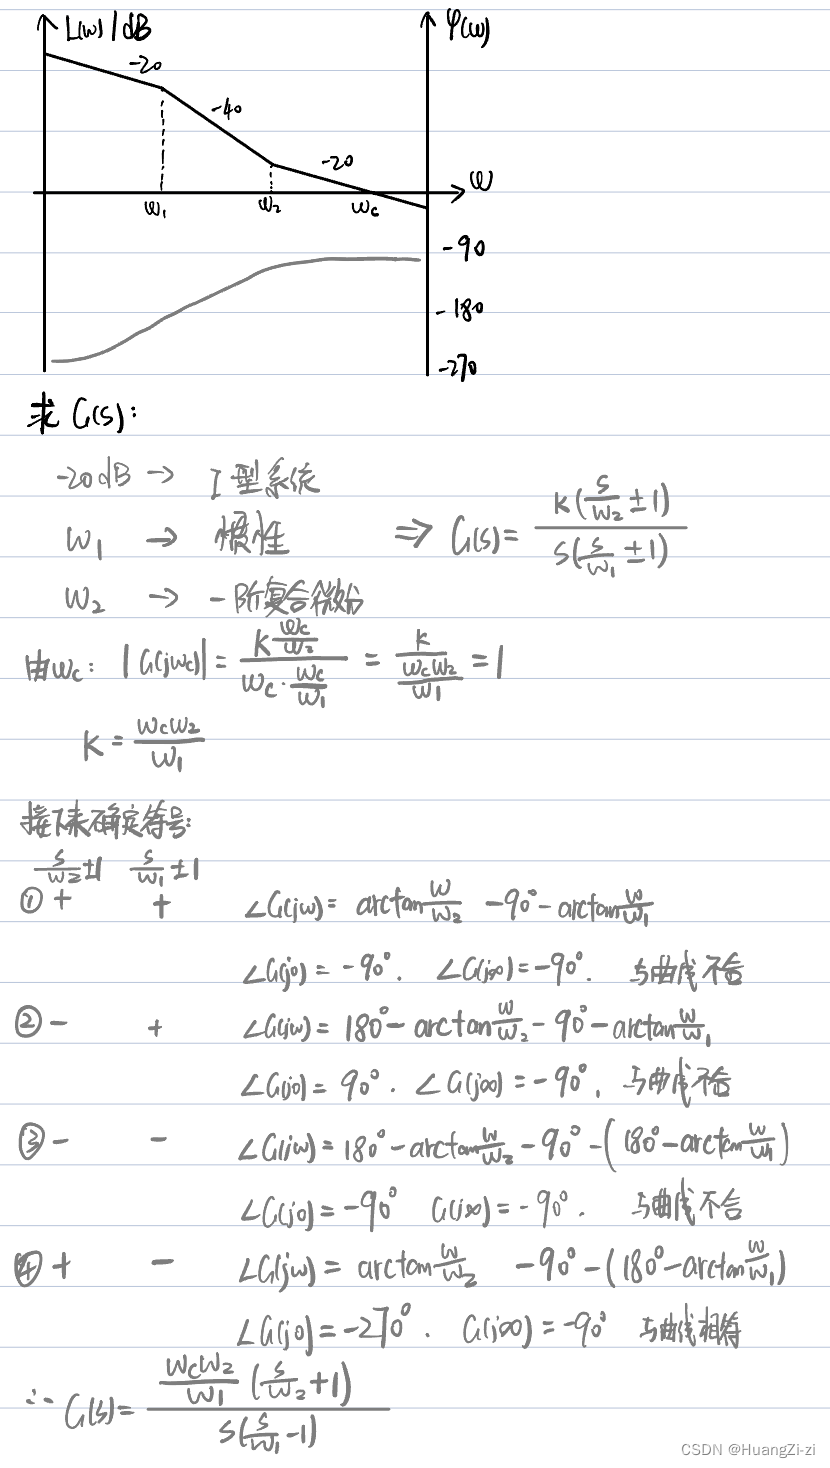 L(w)/dB φ(w)
-20
-40
-20
w₁ w₂ wc w
-90
-180
-270
求 G(s):
-20dB → I型系统
w₁ → 惯性 ⇒ G(s)= K(s/w₂ ±1) / s(s/w₁ ±1)
w₂ → 一阶复合微分
由wc: |G(jwc)| = (K wc/w₂) / (wc · wc/w₁) = K / (wcw₂/w₁) = 1
K = wcw₂/w₁
接下来确定符号:
s/w₂ ±1 s/w₁ ±1
① + + ∠G(jw)= arctan w/w₂ -90°- arctan w/w₁
∠G(j0) = -90°. ∠G(j∞) = -90°. 与曲线不合
② - + ∠G(jw) = 180°- arctan w/w₂ - 90° - arctan w/w₁
∠G(j0) = 90°. ∠G(j∞) = -90°, 与曲线不合
③ - - ∠G(jw) = 180°- arctan w/w₂ - 90° - (180°- arctan w/w₁)
∠G(j0) = -90° G(j∞) = -90°. 与曲线不合
④ + - ∠G(jw) = arctan w/w₂ -90° -(180°- arctan w/w₁)
∠G(j0) = -270°. G(j∞) = -90° 与曲线相符
∴ G(s) = wcw₂/w₁ (s/w₂ +1) / s(s/w₁ -1)
CSDN @HuangZi-zi